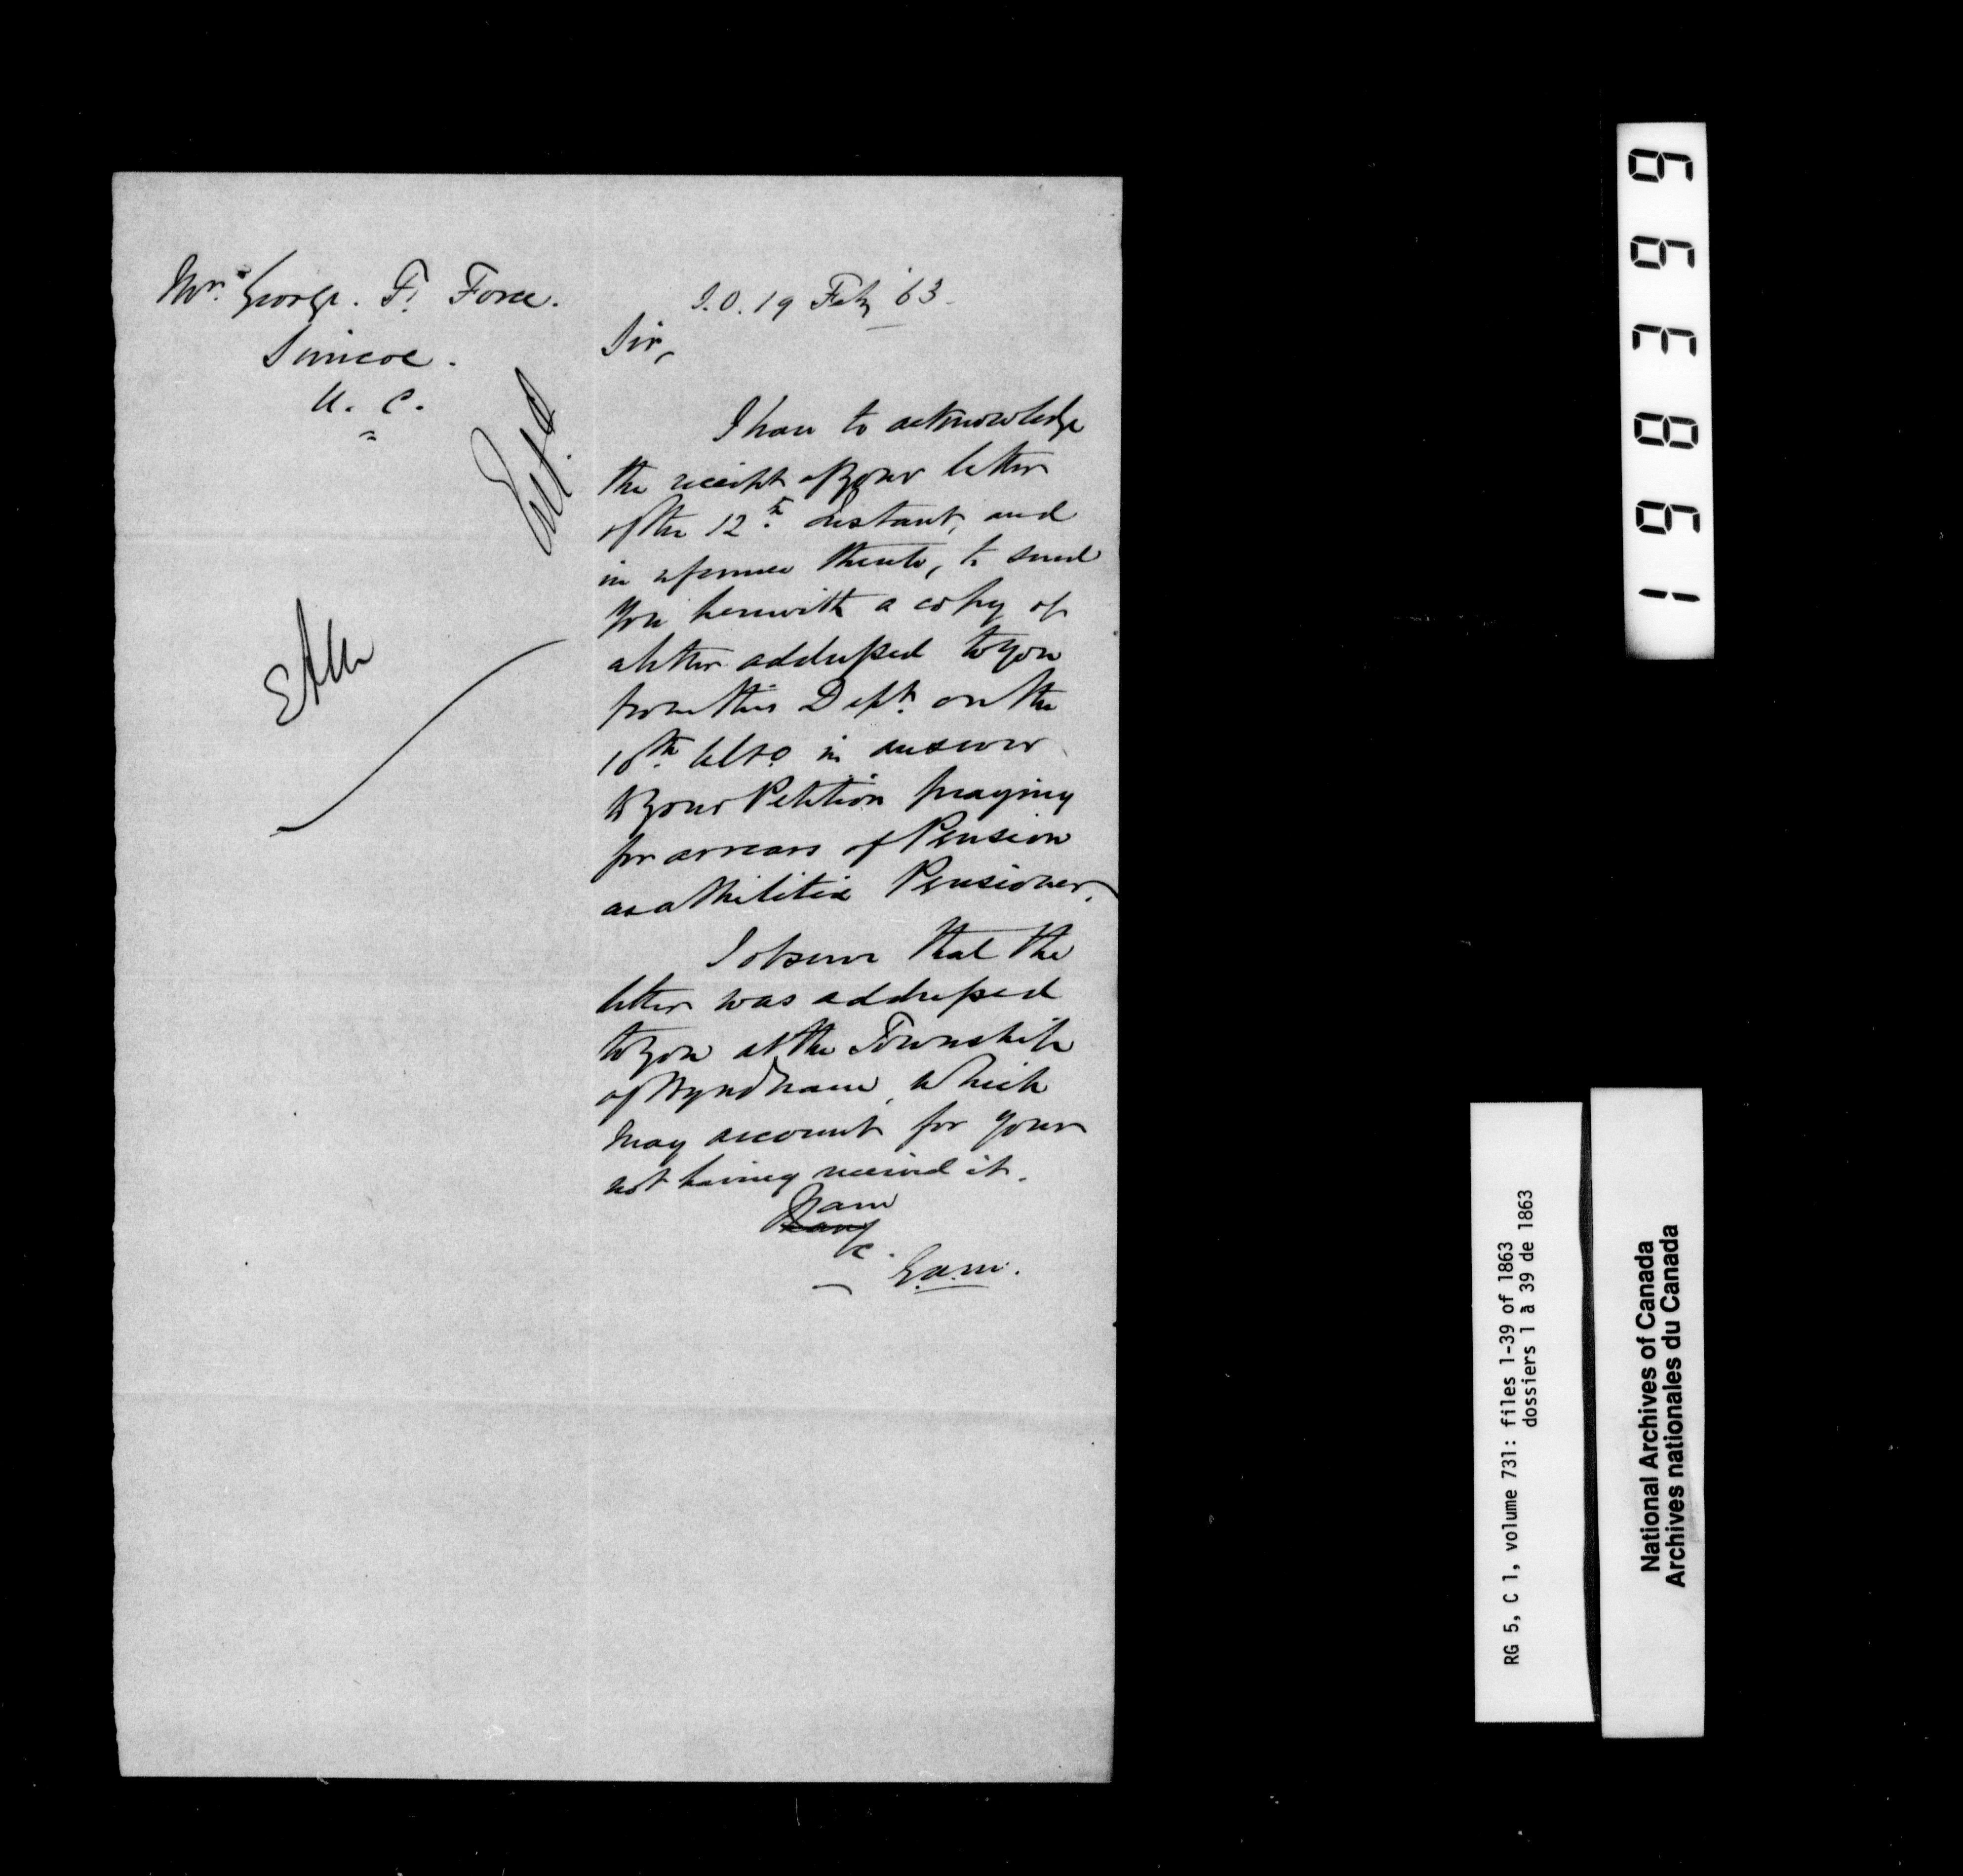 Mr. George. F. Force.
Simcoe.
U. C.
Entd
S.O. 19 Feby '63.
Sir,
I have to acknowledge
the receipt of your letter
of the 12th instant, and
in reference thereto, to send
you herewith a copy of
a letter addressed to you
from this Dept. on the
10th Ulto. in answer
to your Petition praying
for arrears of Pension
as a Militia Pensioner.
I observe that the
letter was addressed
to you at the Township
of Wyndham, which
may account for your
not having received it.
I am
&c.
E.A.M.
169369
RG 5, C 1, volume 731: files 1-39 of 1863
dossiers 1 à 39 de 1863
National Archives of Canada
Archives nationales du Canada